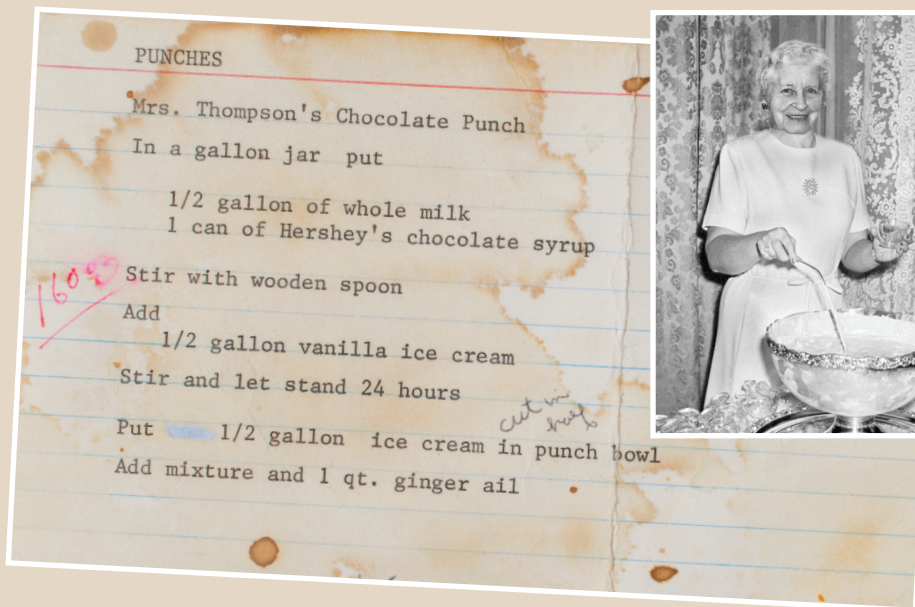 PUNCHES
Mrs. Thompson's Chocolate Punch
In a gallon jar put
1/2 gallon of whole milk
1 can of Hershey's chocolate syrup
16 oz
Stir with wooden spoon
Add
1/2 gallon vanilla ice cream
Stir and let stand 24 hours
cut in
half
Put 1/2 gallon ice cream in punch bowl
Add mixture and 1 qt. ginger ail